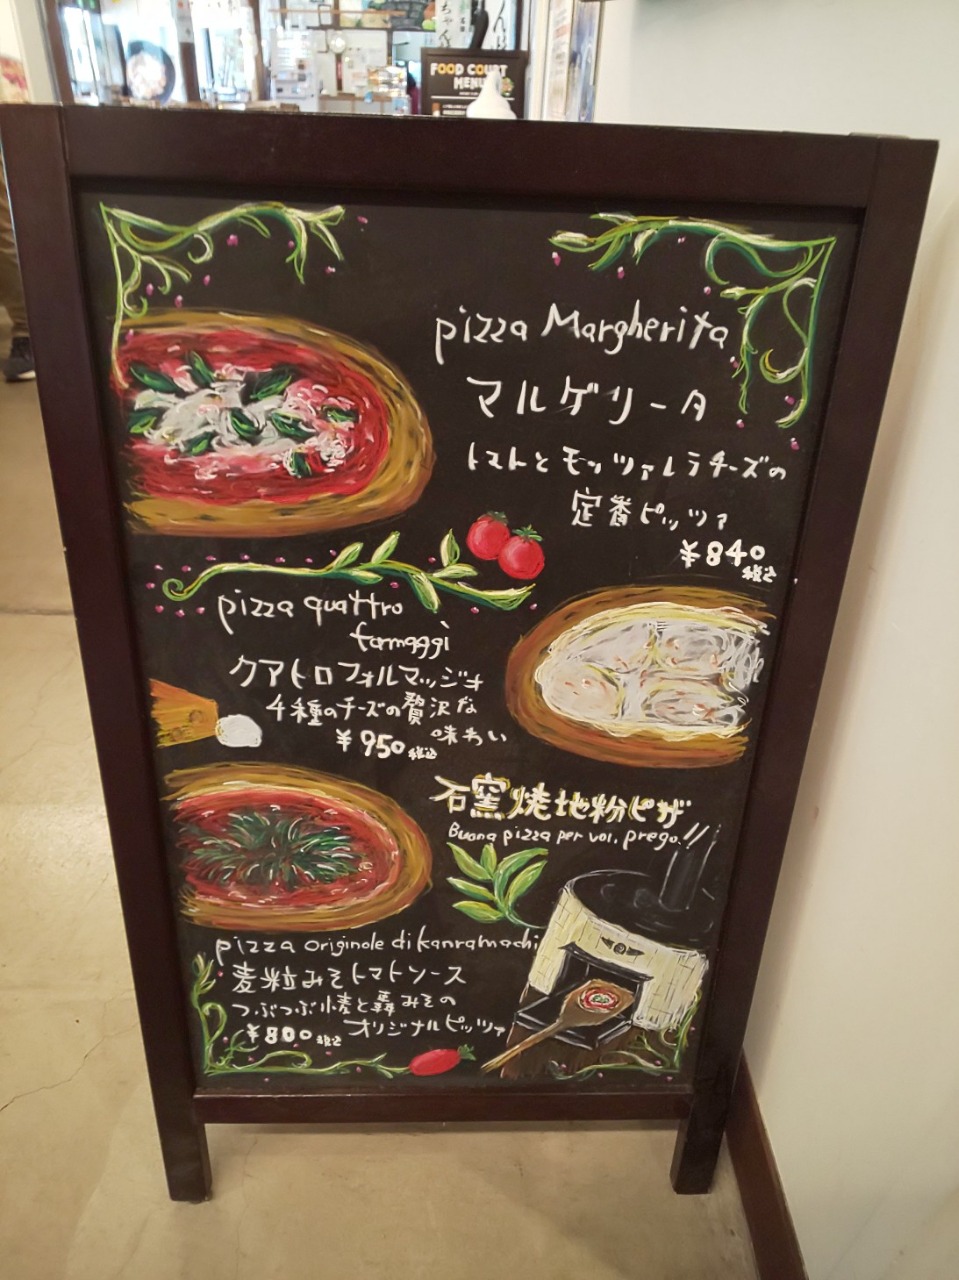 FOOD COURT
MENU
pizza Margherita
マルゲリータ
トマトとモッツァレラチーズの
定番ピッツァ
¥840
税込
pizza quattro
formaggi
クアトロフォルマッジオ
4種のチーズの贅沢な
味わい
¥950 税込
石窯焼地粉ピザ
Buona pizza per voi, prego.!!
pizza originale di kanramachi
麦粒みそトマトソース
つぶつぶ小麦と轟みその
オリジナルピッツァ
¥800 税込